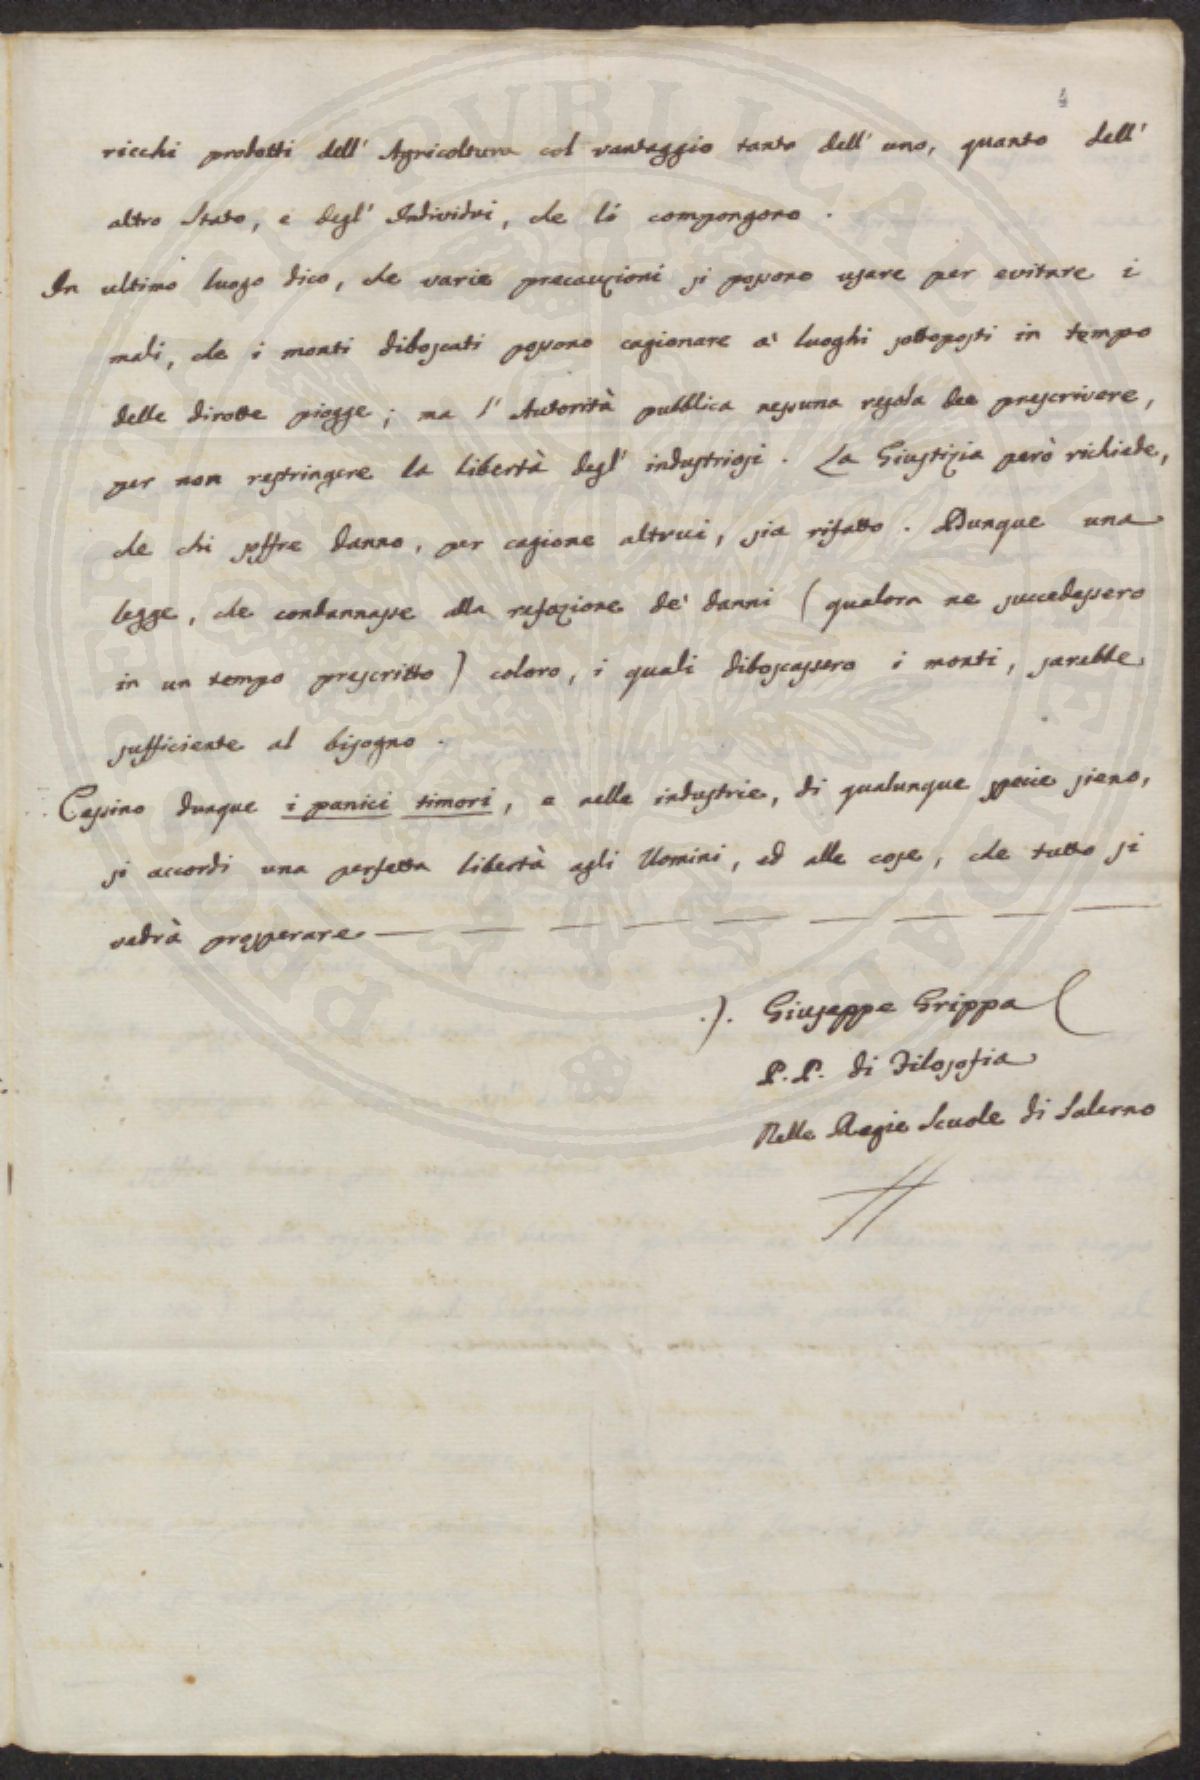 4
ricchi prodotti dell' Agricoltura col vantaggio tanto dell' uno, quanto dell'
altro Stato, e degl' Individui, che lo compongono.
In ultimo luogo dico, che varie precauzioni si possono usare per evitare i
mali, che i monti diboscati possono cagionare a' luoghi sottoposti in tempo
delle dirotte piogge; ma l' Autorità pubblica nessuna regola dee prescrivere,
per non restringere la libertà degl' industriosi. La Giustizia però richiede,
che chi soffre danno, per cagione altrui, sia rifatto. Adunque una
legge, che condannasse alla refazione de' danni (qualora ne succedessero
in un tempo prescritto) coloro, i quali diboscassero i monti, sarebbe
sufficiente al bisogno.
Cessino dunque i panici timori, e nelle industrie, di qualunque specie sieno,
si accordi una perfetta libertà agli Uomini, ed alle cose, che tutto si
vedrà prosperare — — — — — — — — —
Giuseppe Grippa
P. P. di Filosofia
Nelle Regie Scuole di Salerno